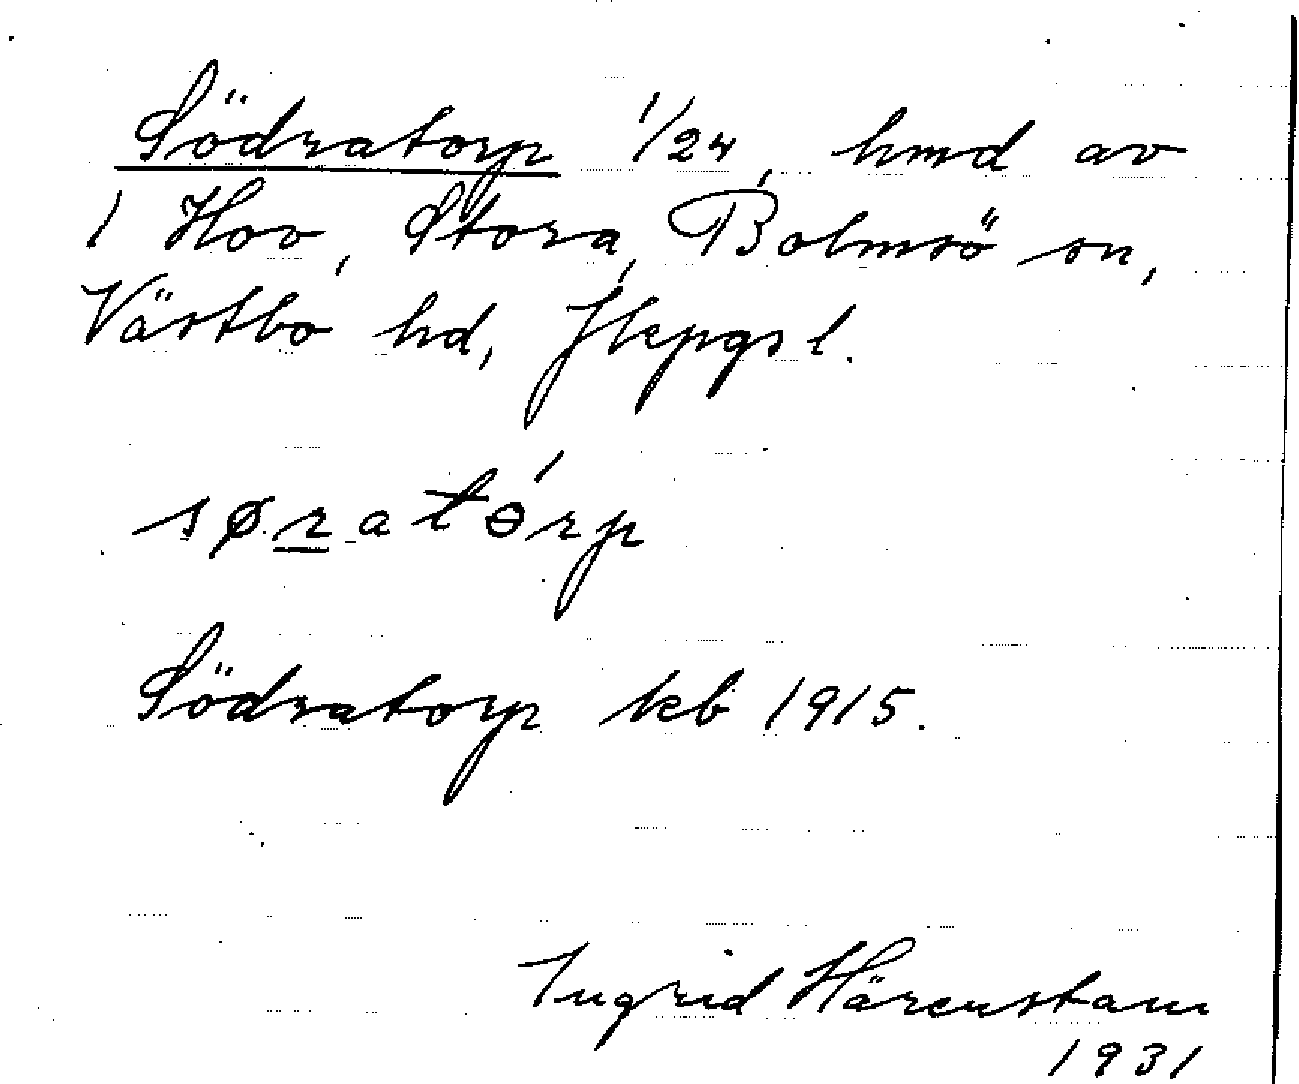 Södratorp 1/24, hmd av
1 Hov, Stora, Bolmsö sn,
Västbo hd, Jkpgs l.
søratɵ́rp
Södratorp kb 1915.
Ingrid Härenstam
1931